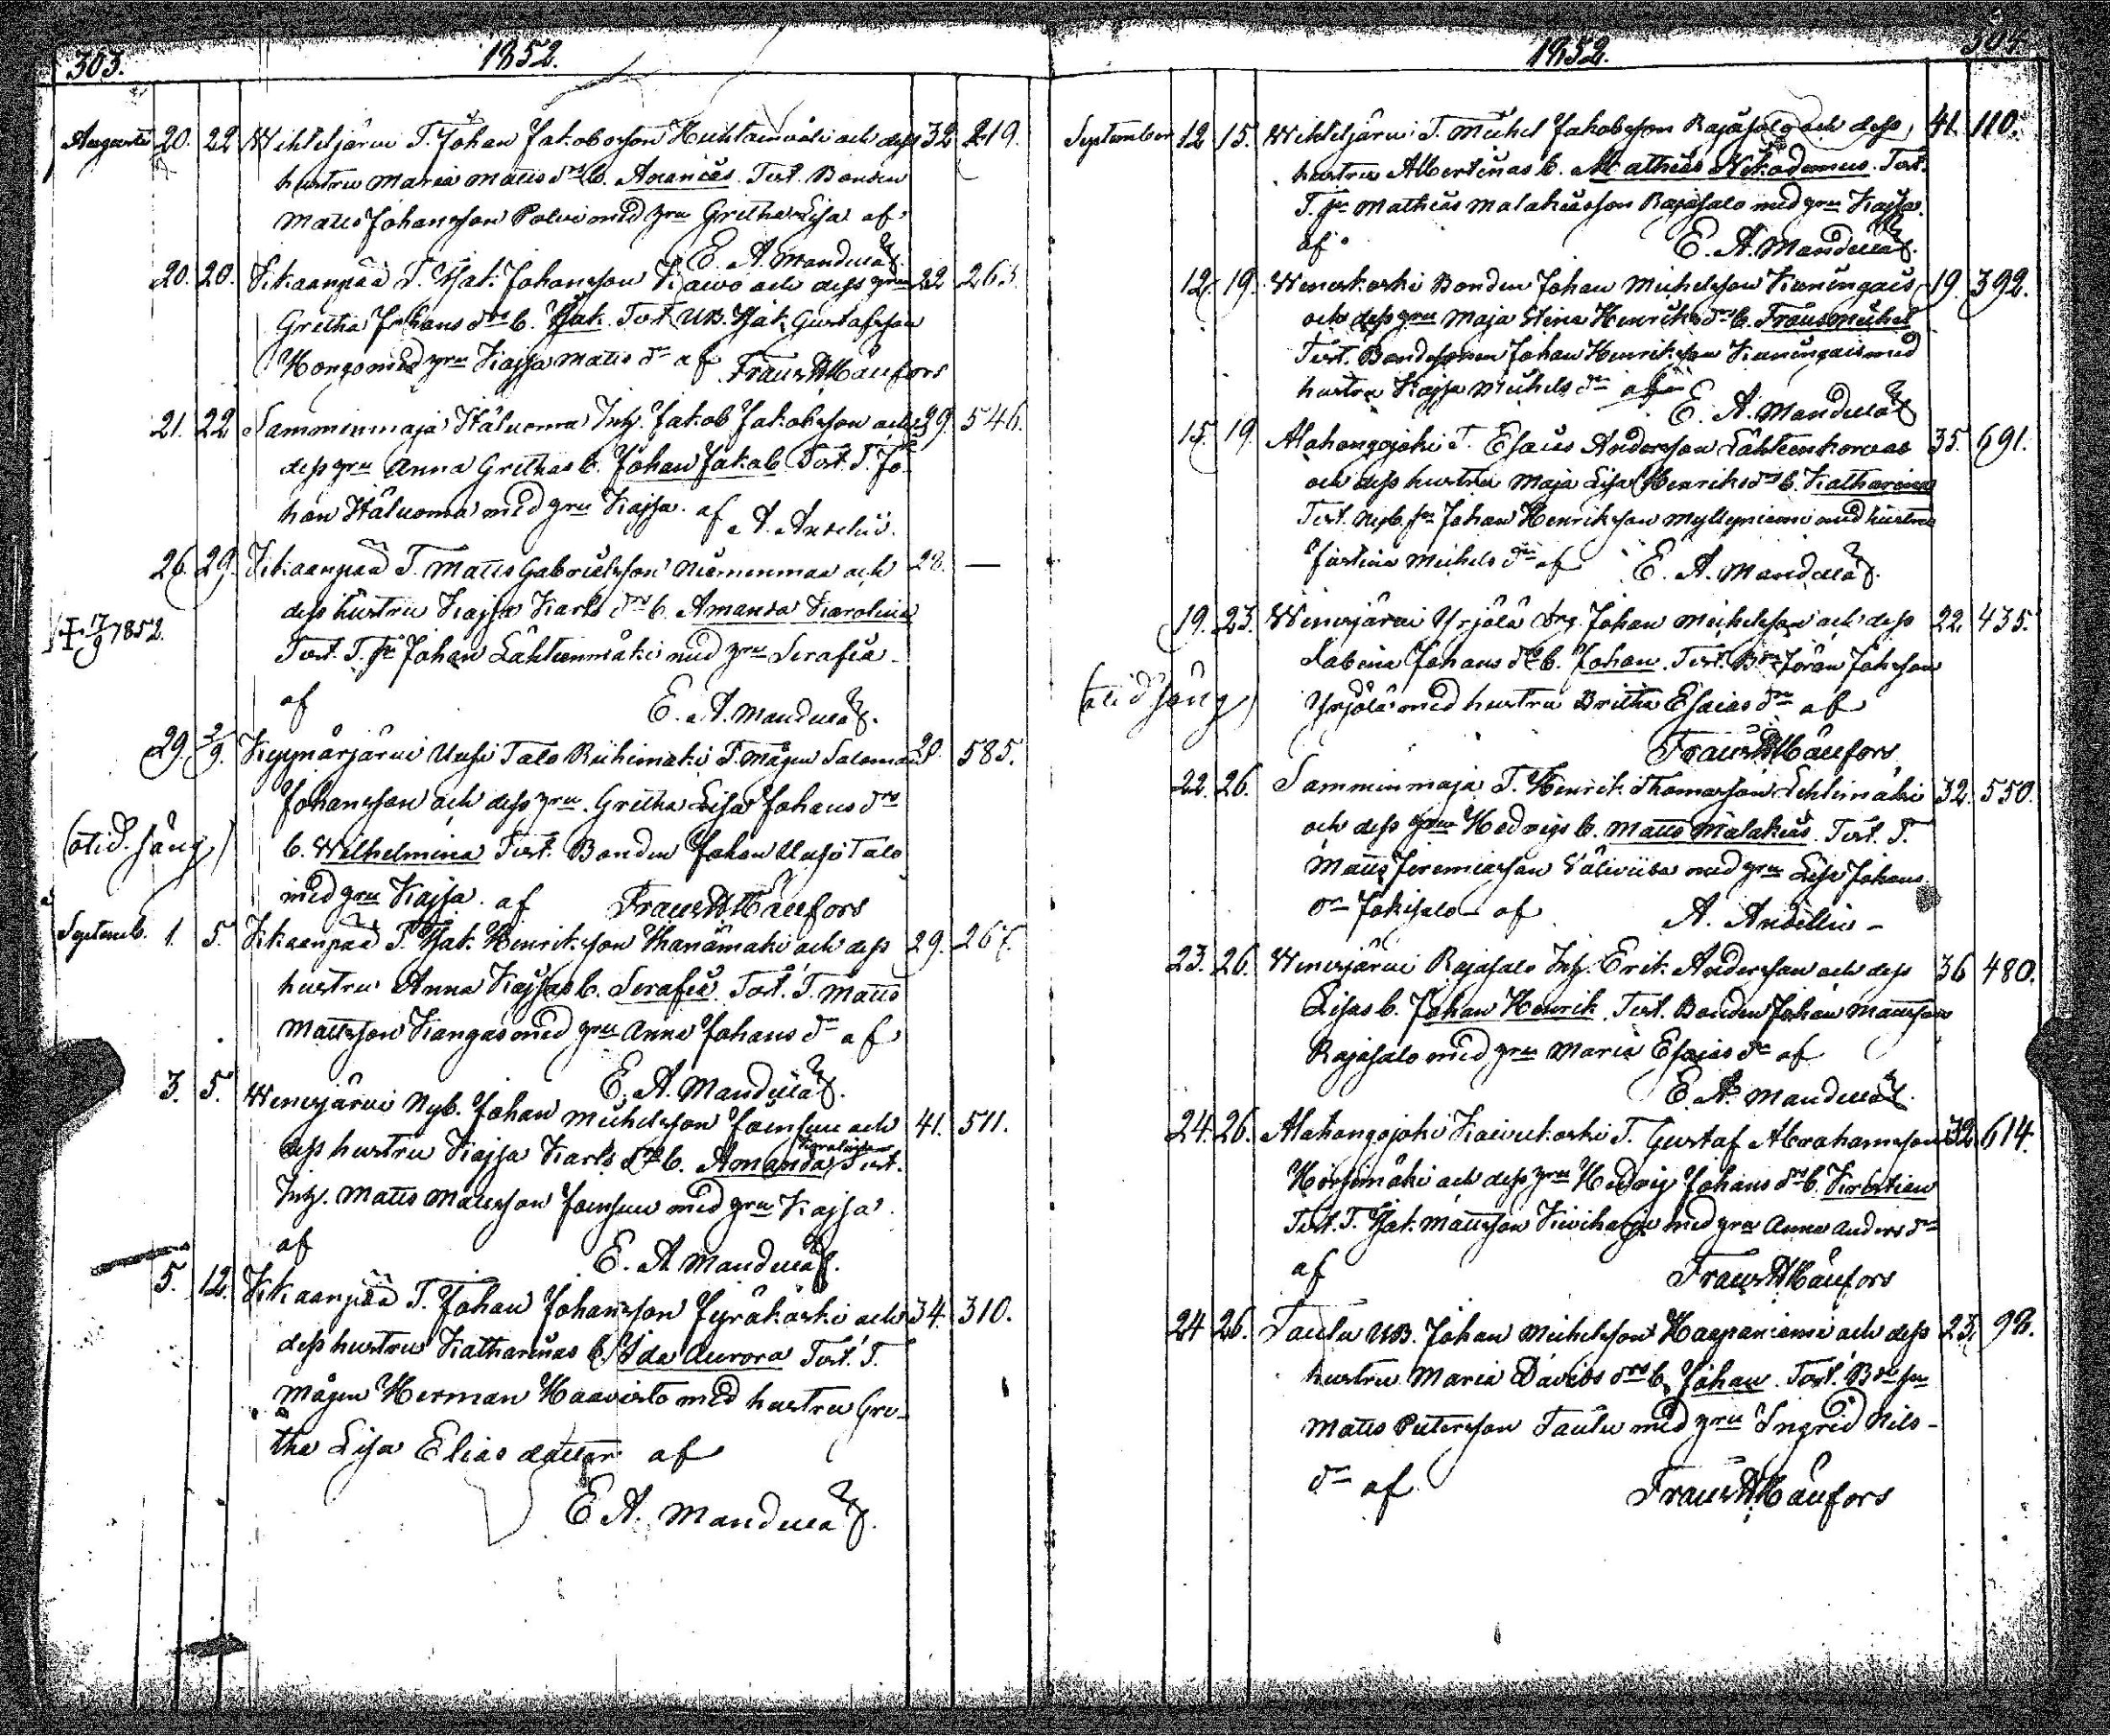 303.
1852.
Augusti 20. 22 Wihteljärvi T. Johan Jakobsson Huhtainväli och dess 32 219.
hustru Maria Matts drs b. Ananias. Test. Bonden
Matts Johansson Polvi med gru Gretha Lisa af
E. A. Mandellöf.
20. 20. Kikaanpää T. Isak Johansson Kaivo och dess gru 22 263.
Gretha Johans drs b. Isak. Test. UB. Isak Gustafsson
Hongo med gru Kajsa Matts dr af Frans H Häufors
21. 22 Samminmaja Häluoma Inh. Jakob Jakobsson och 39. 546.
dess gru Anna Grethas b. Johan Jakob. Test. T. Jo-
han Häluoma med gru Kajsa. af A. Andelin.
26. 29. Kikaanpää T. Matts Gabrielsson Niemenmaa och 28. —
dess hustru Kajsa Karls drs b. Amanda Karolina
† 17/9 1852.
Test. T. sn Johan Lähteenmäki med gru Serafia
af E. A. Mandellöf.
29. 2/9. Kyynärjärvi Uusi Talo Riihimäki T. mågen Salomon 28. 585.
Johansson och dess gru Gretha Lisa Johans drs
(otid. säng) b. Wilhelmina Test. Bonden Johan Uusi Talo
med gru Kajsa. af Frans H Häufors
Septemb. 1. 5. Kikaanpää T. Isak Henriksson Hanämäki och dess 29. 267.
hustru Anna Kajsas b. Serafia. Test. T. Matts
Mattsson Kangas med gru Anna Johans dr af
E. A. Mandellöf.
3. 5. Wenesjärvi Nyb. Johan Michelsson Joensuu och 41. 511.
Karolina
dess hustru Kajsa Karls drs b. Amanda Test.
Inh. Matts Mattsson Joensuu med gru Kajsa
af E. A. Mandellöf.
5. 12. Kikaanpää T. Johan Johansson Jyräkoski och 34. 310.
dess hustru Katharinas b. Ida Aurora Test. T.
mågen Herman Haavisto med hustru Gre-
tha Lisa Elias dotter af
E. A. Mandellöf.
304.
1852.
September 12 15. Wihteljärvi T. Michel Jakobsson Rajasalo och dess 41. 110.
hustru Albertinas b. Mathias Nikodemus. Test.
T. sn Mathias Malakiasson Rajasalo med gru Kajsa.
af E. A. Mandellöf.
12. 19. Weneskoski Bonden Johan Michelsson Kuningais 19. 392.
och dess gru Maja Stina Henriks drs b. Frans Michel
Test. Bondesonen Johan Henriksson Kuningais med
hustru Kajsa Michels dr af E. A. Mandellöf
15. 19. Alahongojoki T. Esaias Andersson Lähteenkorvas 35. 691.
och dess hustru Maja Lisa Henriks drs b. Katharina
Test. Nyb. sn Johan Henriksson Myllyniemi med hustru
Justina Michels dr af E. A. Mandellöf.
19. 23. Wenesjärvi Yrjölä Drg. Johan Michelsson och dess 22. 435.
Sabina Johans drs b. Johan. Test. Bn Jöran Johsson
(otid säng) Yrjölä med hustru Britha Esaias dr af
Frans H Häufors
22. 26. Samminmaja T. Henrik Thomasson Lehtimäki 32. 550.
och dess gru Hedvigs b. Matts Malakias. Test. T.
Matts Jeremiasson Väliviita med gru Lisa Johans
dr Jokisalo af A. Andelin
23. 26. Wenesjärvi Rajasalo Inh. Erik Andersson och dess 36 480.
Lisas b. Johan Henrik. Test. Bonden Johan Mattsson
Rajasalo med gru Maria Esaias dr af
E. A. Mandellöf.
24. 26. Alahongojoki Kaivukoski T. Gustaf Abrahamsson 32. 614.
Heisimäki och dess gru Hedvig Johans drs b. Kristian
Test. T. Isak Mattsson Kiviharju med gru Anna Anders dr
af Frans H Häufors
24 26. Taulu UB. Johan Michelsson Haapaniemi och dess 23. 98.
hustru Maria Davids drs b. Johan. Test. Bde sn
Matts Pettersson Taulu med gru Ingrid Nils-
dr af Frans H Häufors